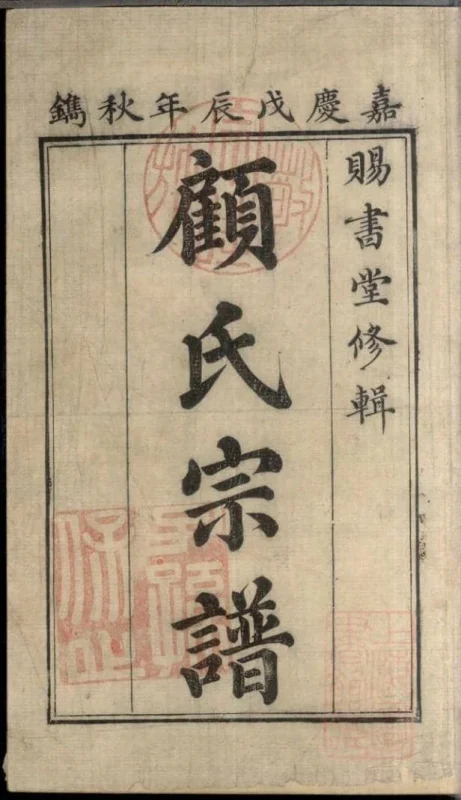 嘉慶戊辰年秋鐫
賜書堂修輯
顧氏宗譜